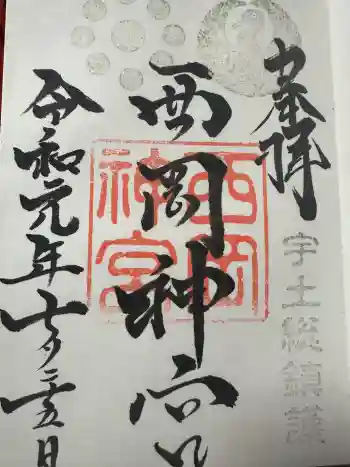 奉拝
宇土総鎮護
西岡神宮
西岡
神宮
令和元年七月二五日